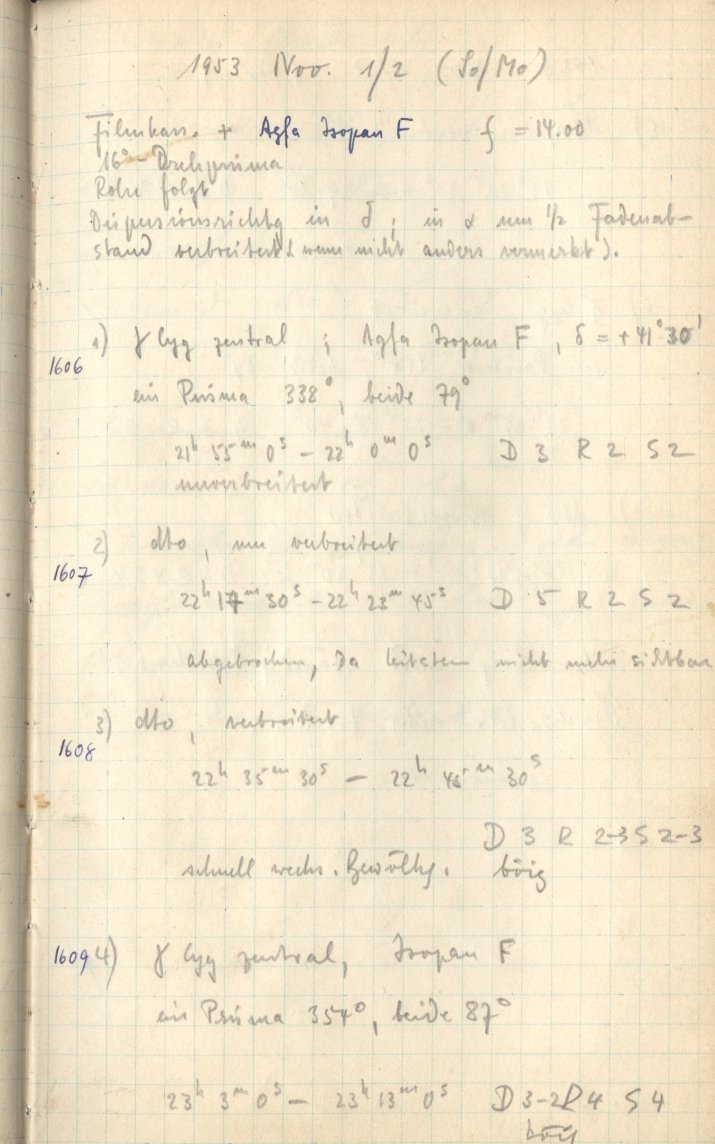 1953 Nov. 1/2 (So/Mo)
Filmkam. + Agfa Isopan F f = 14.00
16°- Drehprisma
Rohr folgt
Dispersionsrichtg in δ ; in α um 1/2 Fadenab-
stand verbreitert (wenn nicht anders vermerkt).
1) γ Cyg zentral ; Agfa Isopan F , δ = + 41° 30'
1606
ein Prisma 338°, beide 79°
21h 55m 0s – 22h 0m 0s D 3 R 2 S 2
unverbreitert
2) dto , nur verbreitert
1607
22h 17m 30s – 22h 23m 45s D 5 R 2 S 2
abgebrochen, da Leitstern nicht mehr sichtbar
3) dto , verbreitert
1608
22h 35m 30s – 22h 45m 30s
D 3 R 2-3 S 2-3
schnell wechs. Bewölkg. böig
1609 4) γ Cyg zentral, Isopan F
ein Prisma 354°, beide 87°
23h 3m 0s – 23h 13m 0s D 3-2 R 4 S 4
böig